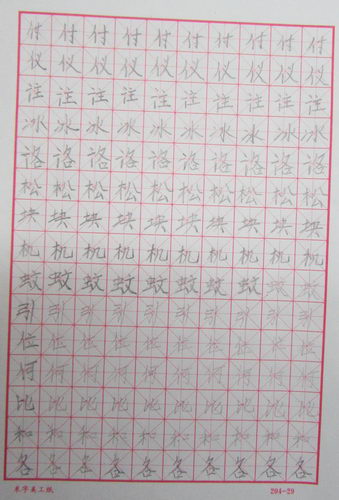 付付付付付付付付付付
仪仪仪仪仪仪仪仪仪仪
注注注注注注注注注注
冰冰冰冰冰冰冰冰冰冰
洛洛洛洛洛洛洛洛洛洛
松松松松松松松松松松
块块块块块块块块块块
机机机机机机机机机机
蚊蚊蚊蚊蚊蚊蚊蚊蚊蚊
引引引引引引引引引引
位位位位位位位位位位
何何何何何何何何何何
比比比比比比比比比比
和和和和和和和和和和
各各各各各各各各各各
米字美工纸 204-29